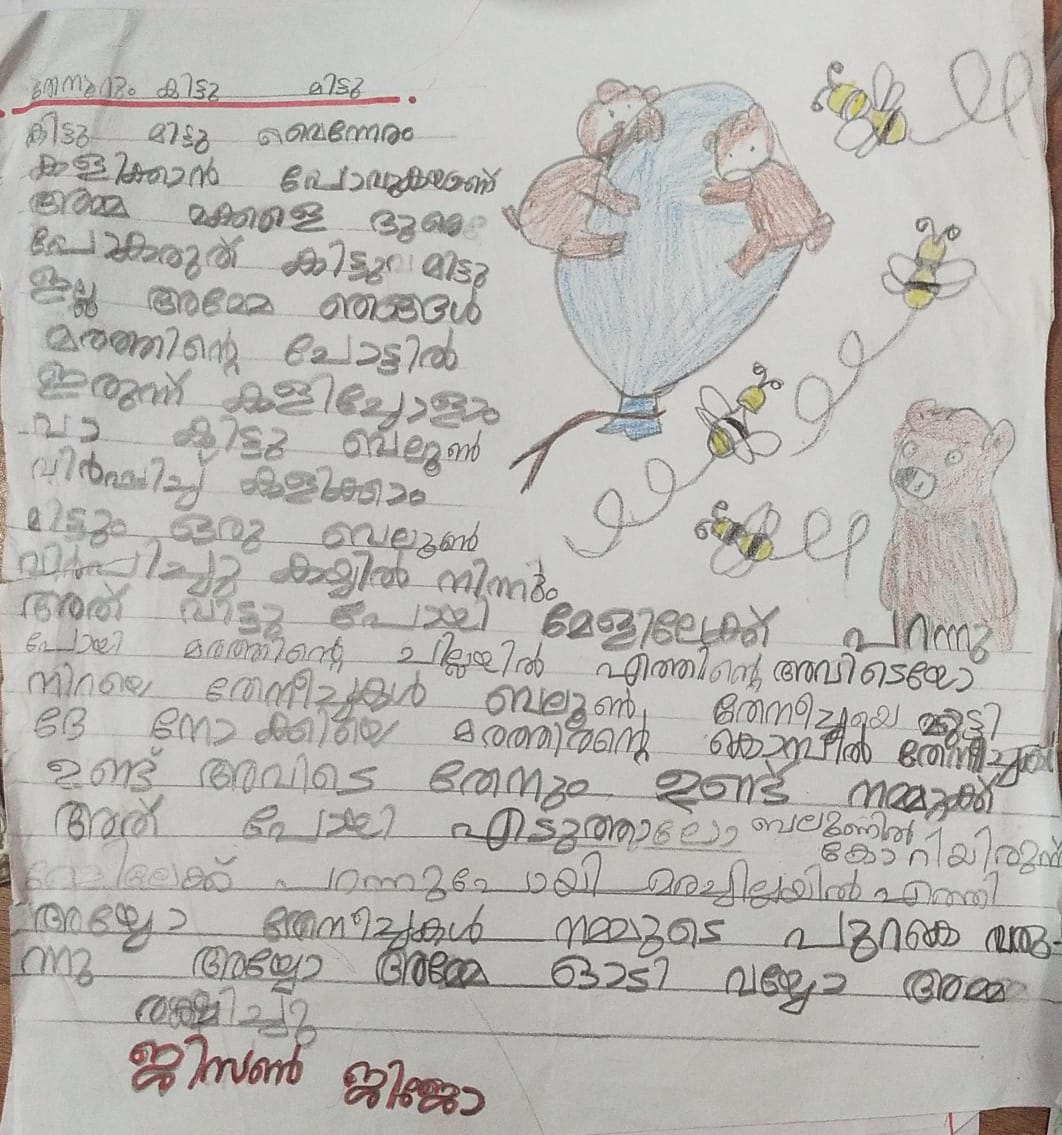 തേനും കിട്ടു മിട്ടു
കിട്ടു മിട്ടു വൈന്നേരം
കളിക്കാൻ പോവുകയാണ്
അമ്മ മക്കളെ ദൂരെ
പോകരുത് കിട്ടു മിട്ടു
ഇല്ല അമ്മേ ഞങ്ങൾ
മരത്തിന്റെ ചോട്ടിൽ
ഇരുന്ന് കളിച്ചോളാം
വാ കിട്ടു ബെലൂൺ
വീർപ്പിച്ച് കളിക്കാം
മിട്ടും ഒരു ബെലൂൺ
വിർപ്പിച്ചു കയ്യിൽ നിന്നും
അത് വിട്ടു പോയി മേളിലേക്ക് പറന്നു
പോയി മരത്തിന്റെ ചില്ലയിൽ എത്തിന്റെ അവിടെയോ
നിറയെ തേനീച്ചകൾ ബലൂൺ, തേനീച്ചയെ മുട്ടി
ദേ നോക്കിയെ മരത്തിന്റെ കൊമ്പിൽ തേനീച്ചകൾ
ഉണ്ട് അവിടെ തേനും ഉണ്ട് നമ്മുക്ക്
അത് പോയി എടുത്താലോ ബലൂണിൽ
കേറിയിരുന്ന്
മേലിലേക്ക് പറന്നുപോയി മരച്ചില്ലയിൽ എത്തി
അയ്യോ തേനീച്ചകൾ നമ്മുടെ പുറകെ വരു-
ന്നു അയ്യോ അമ്മേ ഓടി വയ്യോ അമ്മ
ജിസൺ ജിജോ